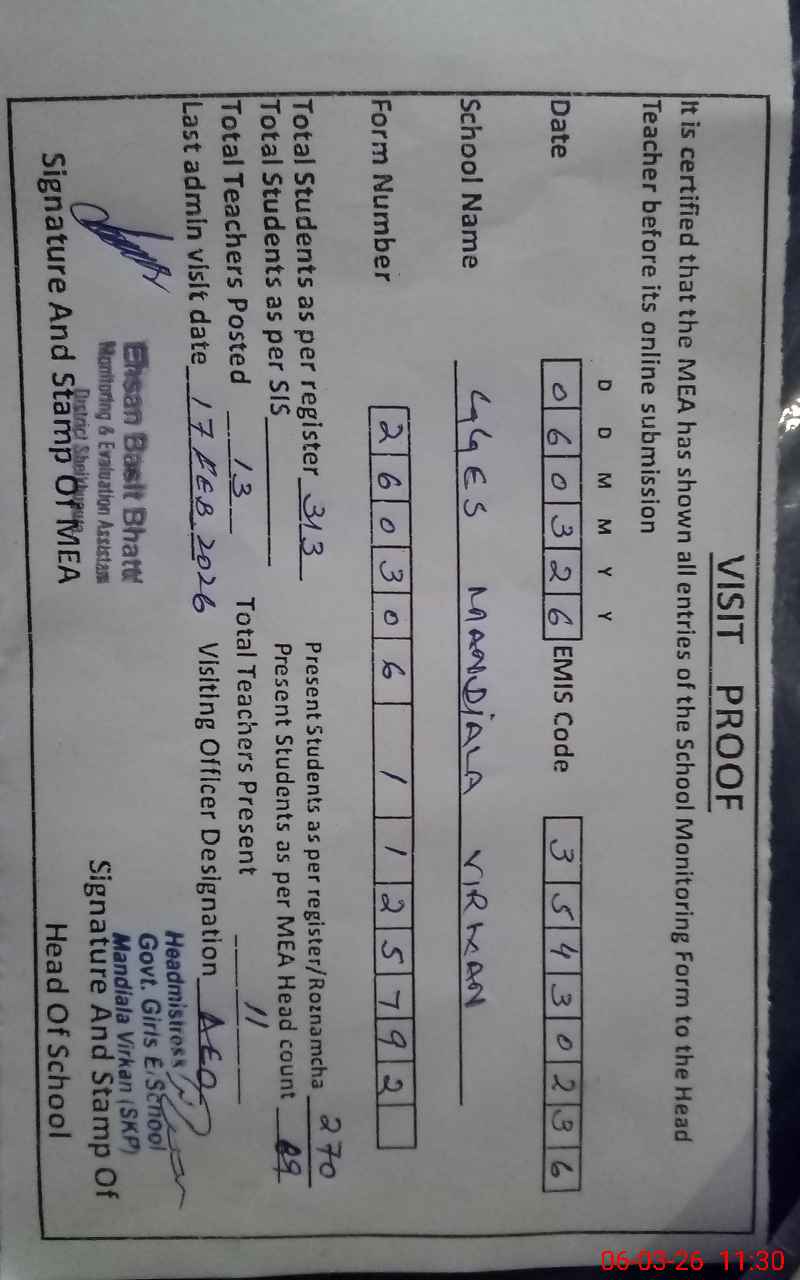 VISIT PROOF
It is certified that the MEA has shown all entries of the School Monitoring Form to the Head
Teacher before its online submission
D D M M Y Y
Date 060326 EMIS Code 35430236
School Name GGES MANDIALA VIRMAN
Form Number 2603061125792
Total Students as per register 313 Present Students as per register/Roznamcha 270
Total Students as per SIS Present Students as per MEA Head count
Total Teachers Posted 13 Total Teachers Present 11
Last admin visit date 17 FEB 2026 Visiting Officer Designation AEO
Ehsan Basit Bhatti
Monitoring & Evaluation Assistant
District Sheikhupura
Signature And Stamp Of MEA
Headmistress
Govt. Girls E/School
Mandiala Virkan (SKP)
Signature And Stamp Of
Head Of School
06-03-26 11:30